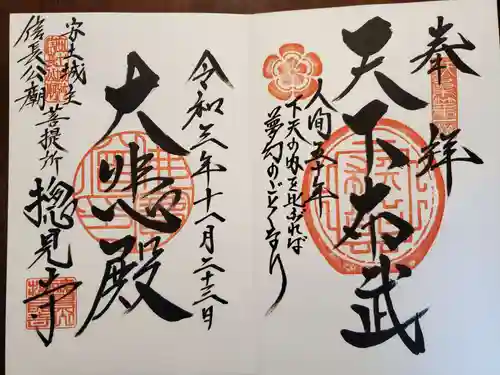 奉拝
天下布武
人間五十年
下天の内をくらぶれば
夢幻のごとくなり
令和三年十一月二十三日
大悲殿
安土城主
信長公廟 菩提所
摠見寺